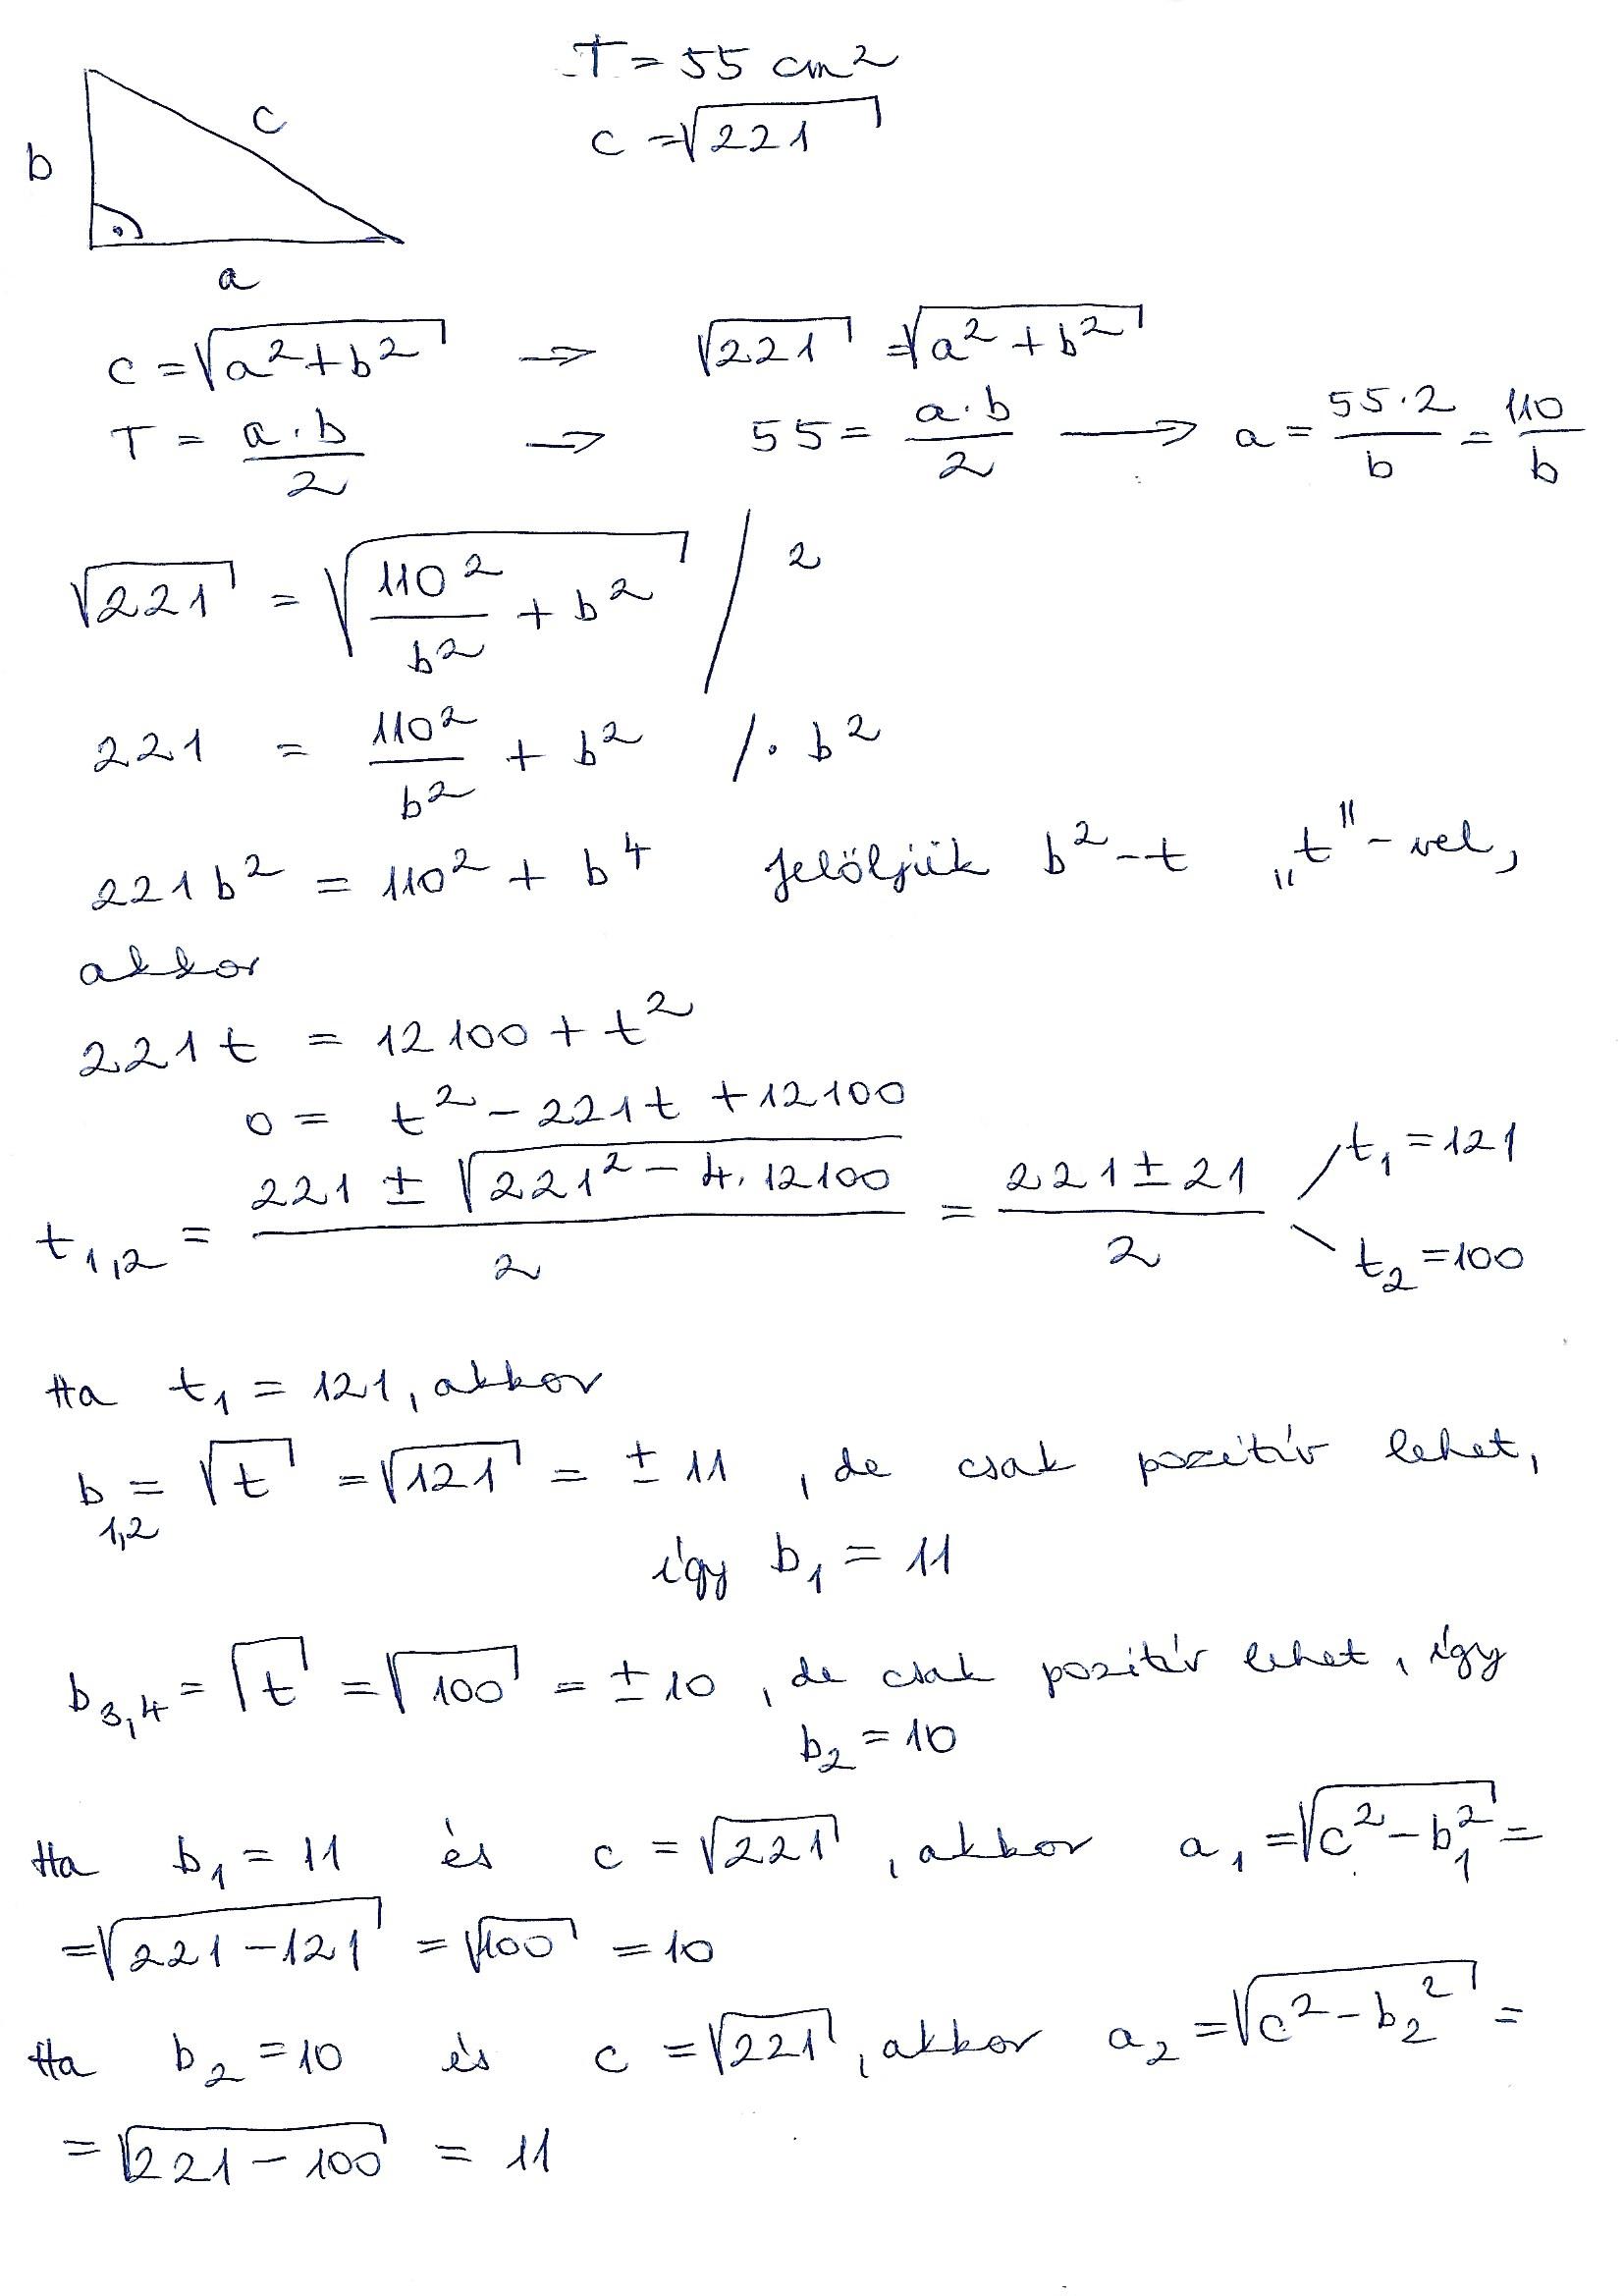 T = 55 cm²
c = √221
b
c
a
c = √(a² + b²) → √221 = √(a² + b²)
T = a·b/2 → 55 = a·b/2 → a = 55·2/b = 110/b
√221 = √(110²/b² + b²) /²
221 = 110²/b² + b² /· b²
221 b² = 110² + b⁴ Jelöljük b²-t „t"-vel,
akkor
221 t = 12100 + t²
0 = t² - 221t + 12100
t₁,₂ = (221 ± √(221² - 4·12100))/2 = (221 ± 21)/2 t₁ = 121
t₂ = 100
Ha t₁ = 121, akkor
b₁,₂ = √t = √121 = ± 11, de csak pozitív lehet,
így b₁ = 11
b₃,₄ = √t = √100 = ± 10, de csak pozitív lehet, így
b₂ = 10
Ha b₁ = 11 és c = √221, akkor a₁ = √(c² - b₁²) =
= √(221 - 121) = √100 = 10
Ha b₂ = 10 és c = √221, akkor a₂ = √(c² - b₂²) =
= √(221 - 100) = 11